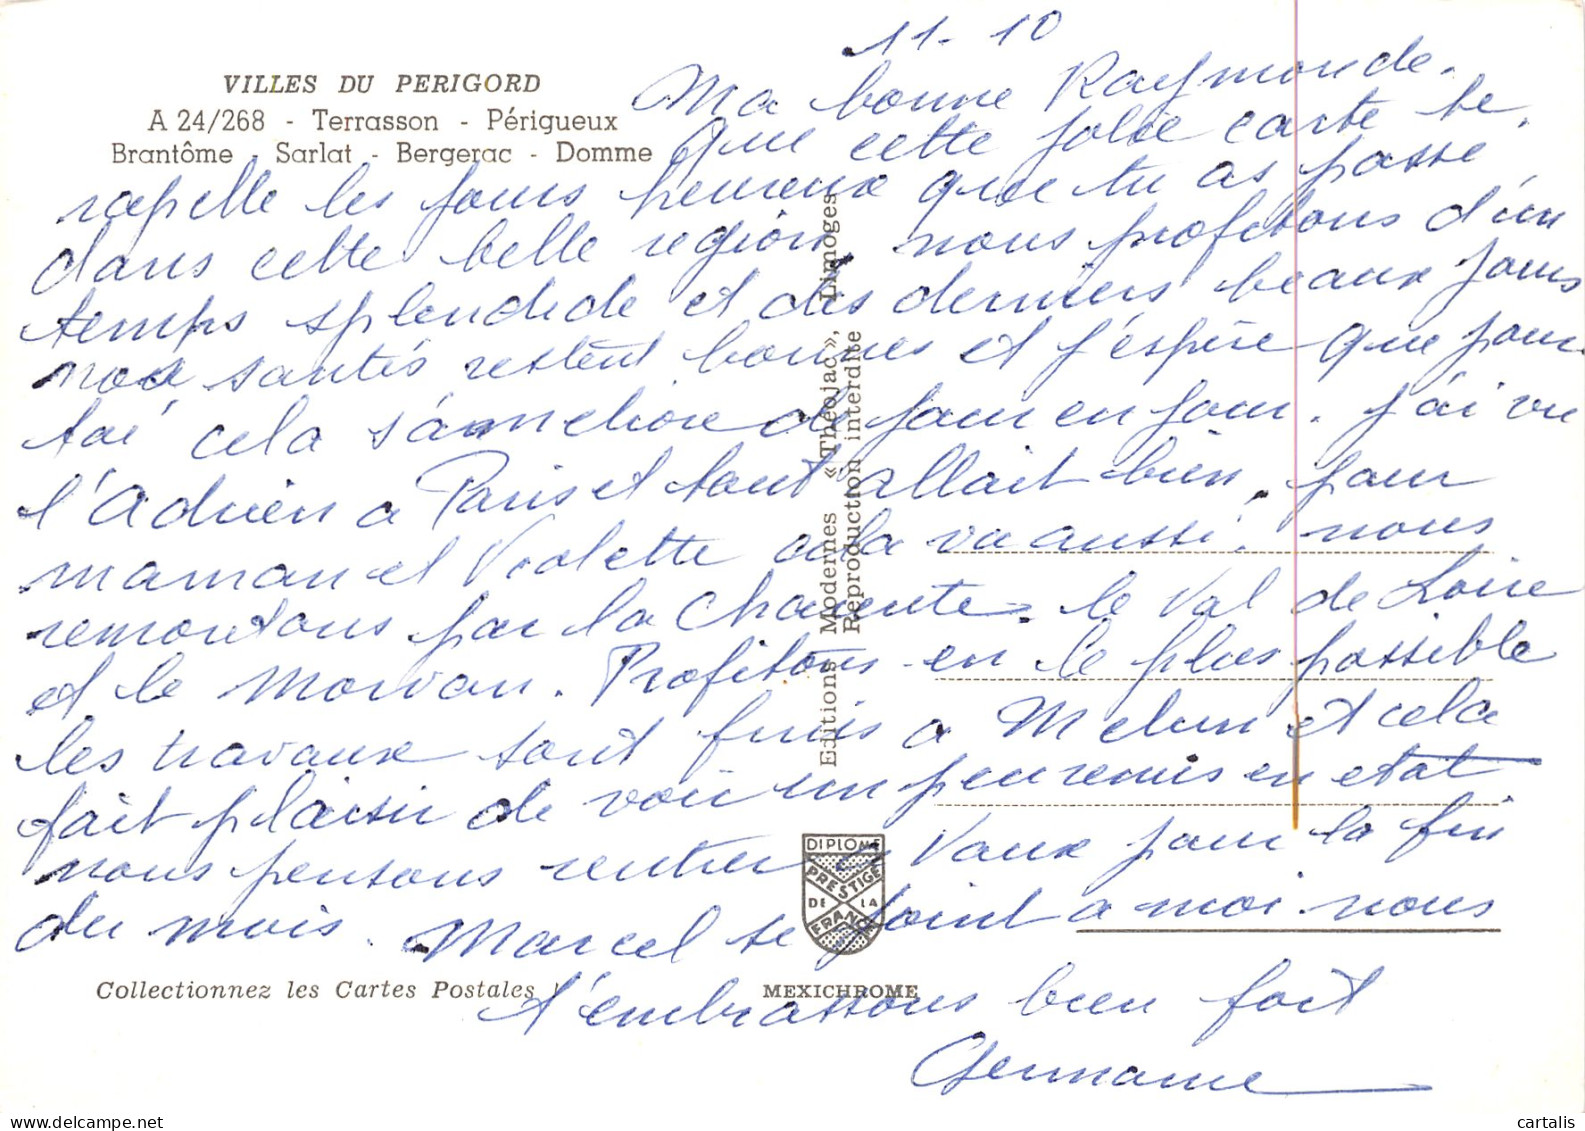 11-10
VILLES DU PERIGORD
A 24/268 - Terrasson - Périgueux
Brantôme - Sarlat - Bergerac - Domme
Ma bonne Raymonde.
Que cette jolie carte te
rapelle les jours heureux que tu as passé
dans cette belle region, nous profitons d'un
temps splendide et des derniers beaux jours
nos santés restent bonnes et j'espère que pour
toi cela s'améliore de jour en jour. J'ai vu
l'Adrien a Paris et tout allait bien, pour
maman et Violette cela va aussi, nous
remontons par la Charente, le Val de Loire
et le Morvan. Profitons-en le plus possible
les travaux sont finis a Melun et cela
fait plaisir de voir un peu remis en etat
nous pensons rentrer a Vaux pour la fin
du mois. Marcel se joint a moi nous
t'embrassons bien fort
Germaine
Editions Modernes « Théojac », Limoges
Reproduction interdite
DIPLOME
PRESTIGE
DE LA
FRANCE
Collectionnez les Cartes Postales !
MEXICHROME
www.delcampe.net
cartalis